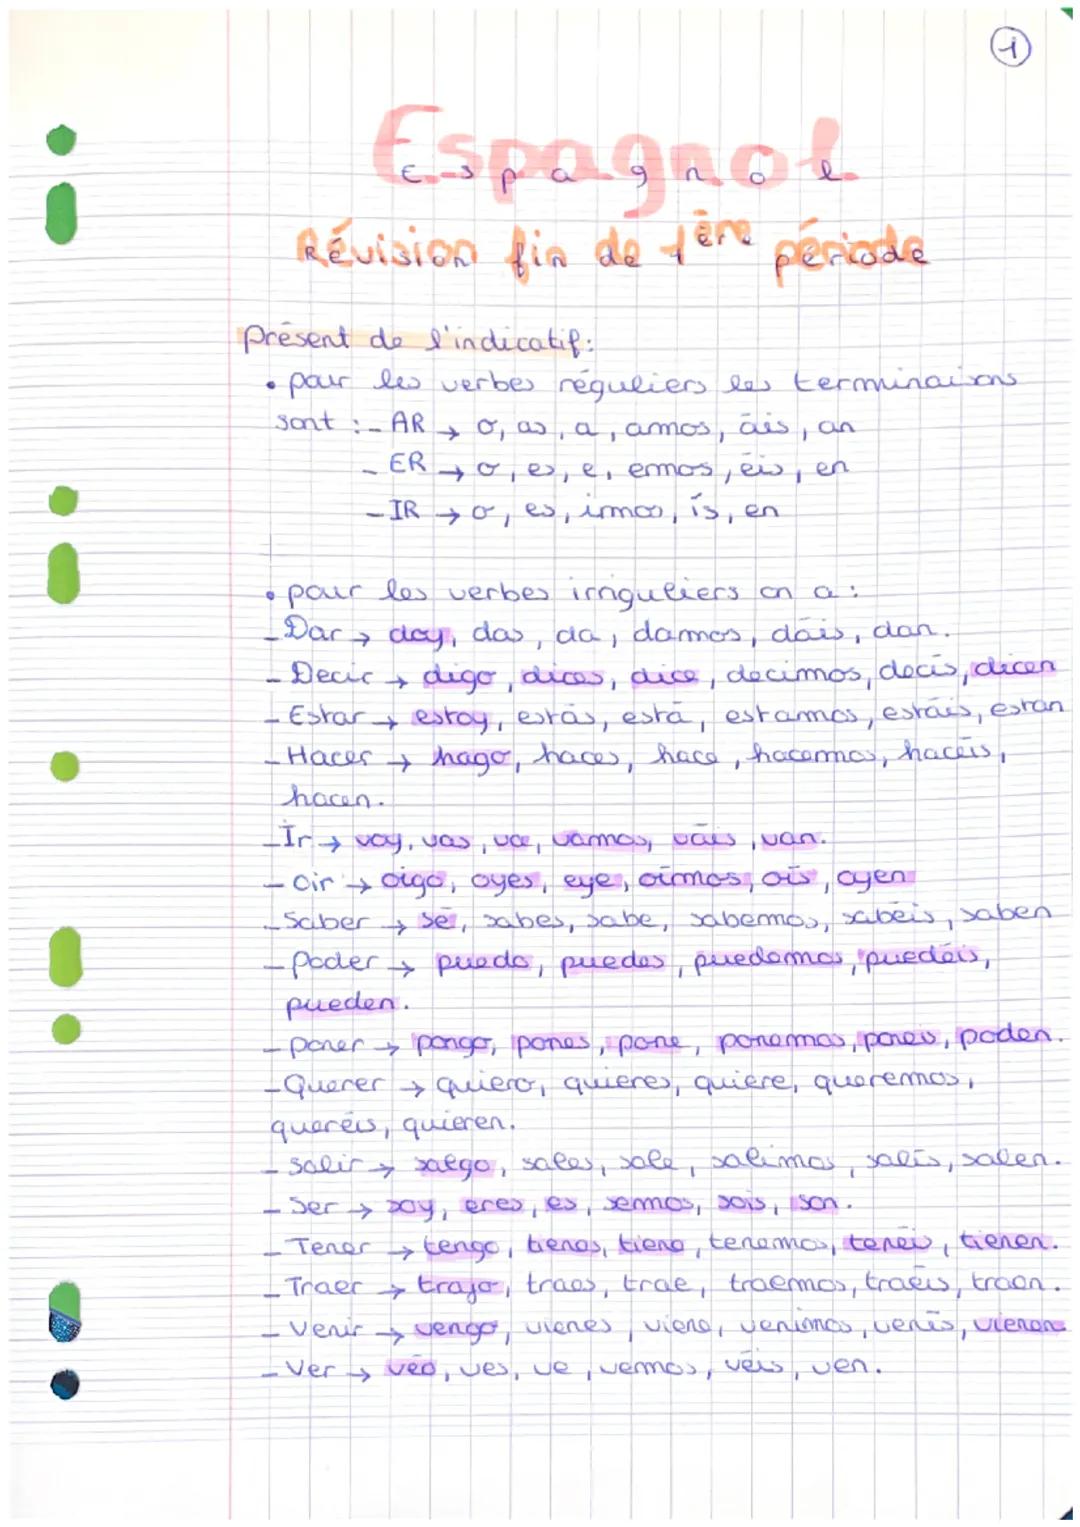 1
Espagnol
Espagnol
Révision fin de 1ère période
Présent de l'indicatif:
• pour les verbes réguliers les terminaisons
sont : - AR → o, as, a, amos, áis, an
- ER → o, es, e, emos, éis, en
- IR → o, es, imos, ís, en
• pour les verbes irriguliers on a :
- Dar → doy, das, da, damos, dáis, dan.
- Decir → digo, dices, dice, decimos, decís, dicen
- Estar → estoy, estás, está, estamos, estáis, estan
- Hacer → hago, haces, hace, hacemos, hacéis,
hacen.
- Ir → voy, vas, va, vamos, váis, van.
- Oir → oigo, oyes, eye, oímos, oís, oyen
- Saber → sé, sabes, sabe, sabemos, sabéis, saben
- Poder → puedo, puedes, puedemos, puedéis,
pueden.
- Poner → pongo, pones, pone, ponemos, poneis, poden.
- Querer → quiero, quieres, quiere, queremos,
queréis, quieren.
- Salir → salgo, sales, sale, salimos, salís, salen.
- Ser → soy, eres, es, semos, sois, son.
- Tener → tengo, tienes, tiene, tenemos, tenéis, tienen.
- Traer → trajo, traes, trae, traemos, traéis, traen.
- Venir → vengo, vienes, viene, venimos, venís, vienen
- Ver → véo, ves, ve, vemos, véis, ven.